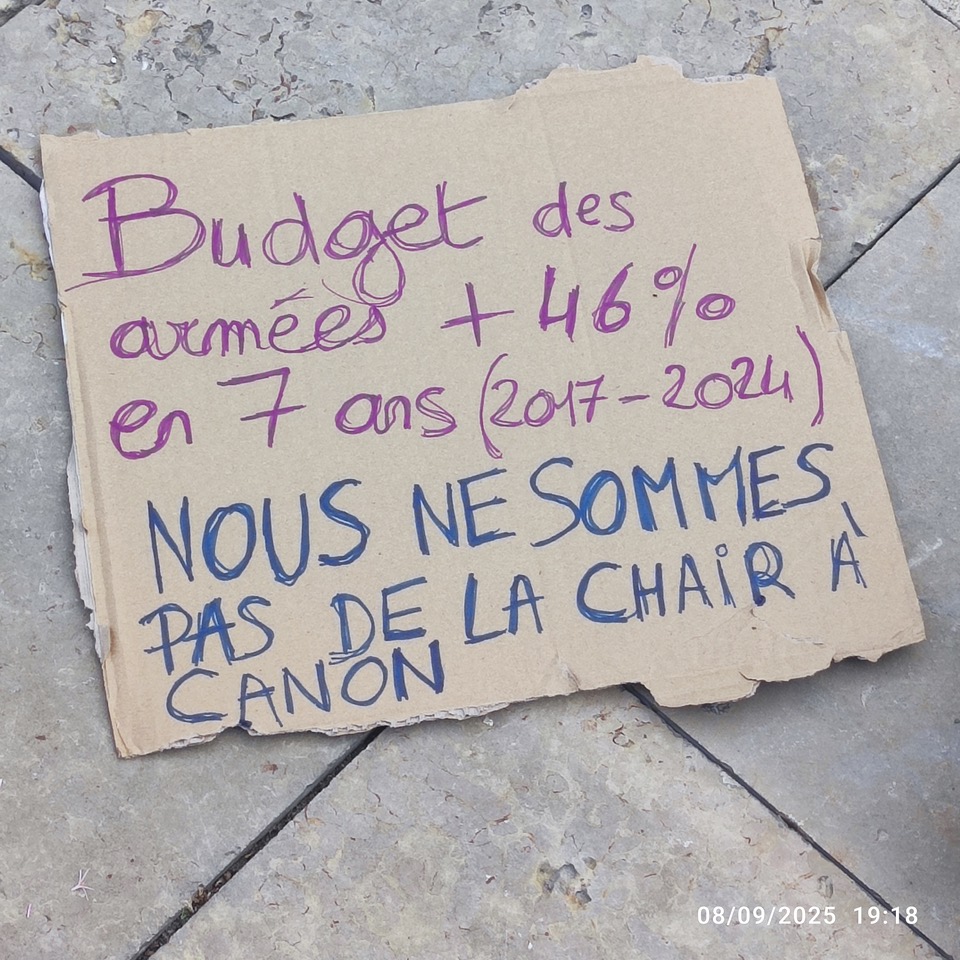 Budget des
armées + 46%
en 7 ans (2017-2024)
NOUS NE SOMMES
PAS DE LA CHAiR À
CANON
08/09/2025 19:18